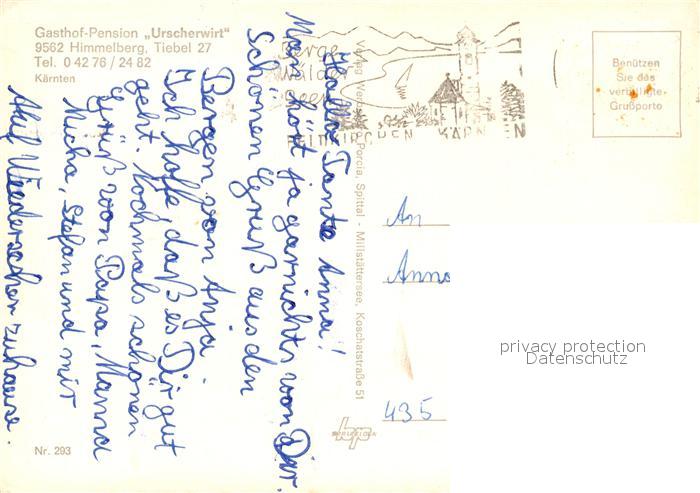 Gasthof-Pension „Urscherwirt"
9562 Himmelberg, Tiebel 27
Tel. 0 42 76 / 24 82
Kärnten
Berge
Wälder
Seen
FELDKIRCHEN KÄRNTEN
Benützen
Sie das
verbilligte
Grußporto
Hallo Tante Anna!
Man hört ja garnichts von Dir.
Schönen Gruß aus den
Bergen von Anja.
Ich hoffe, daß es Dir gut
geht. Nochmals schönen
Gruß von Papa, Mama
Micha, Stefan und mir
Auf Wiedersehen zuhause.
Verlag
Porcia, Spittal - Millstättersee, Koschatstraße 51
An
Anna
435
privacy protection
Datenschutz
Nr. 293